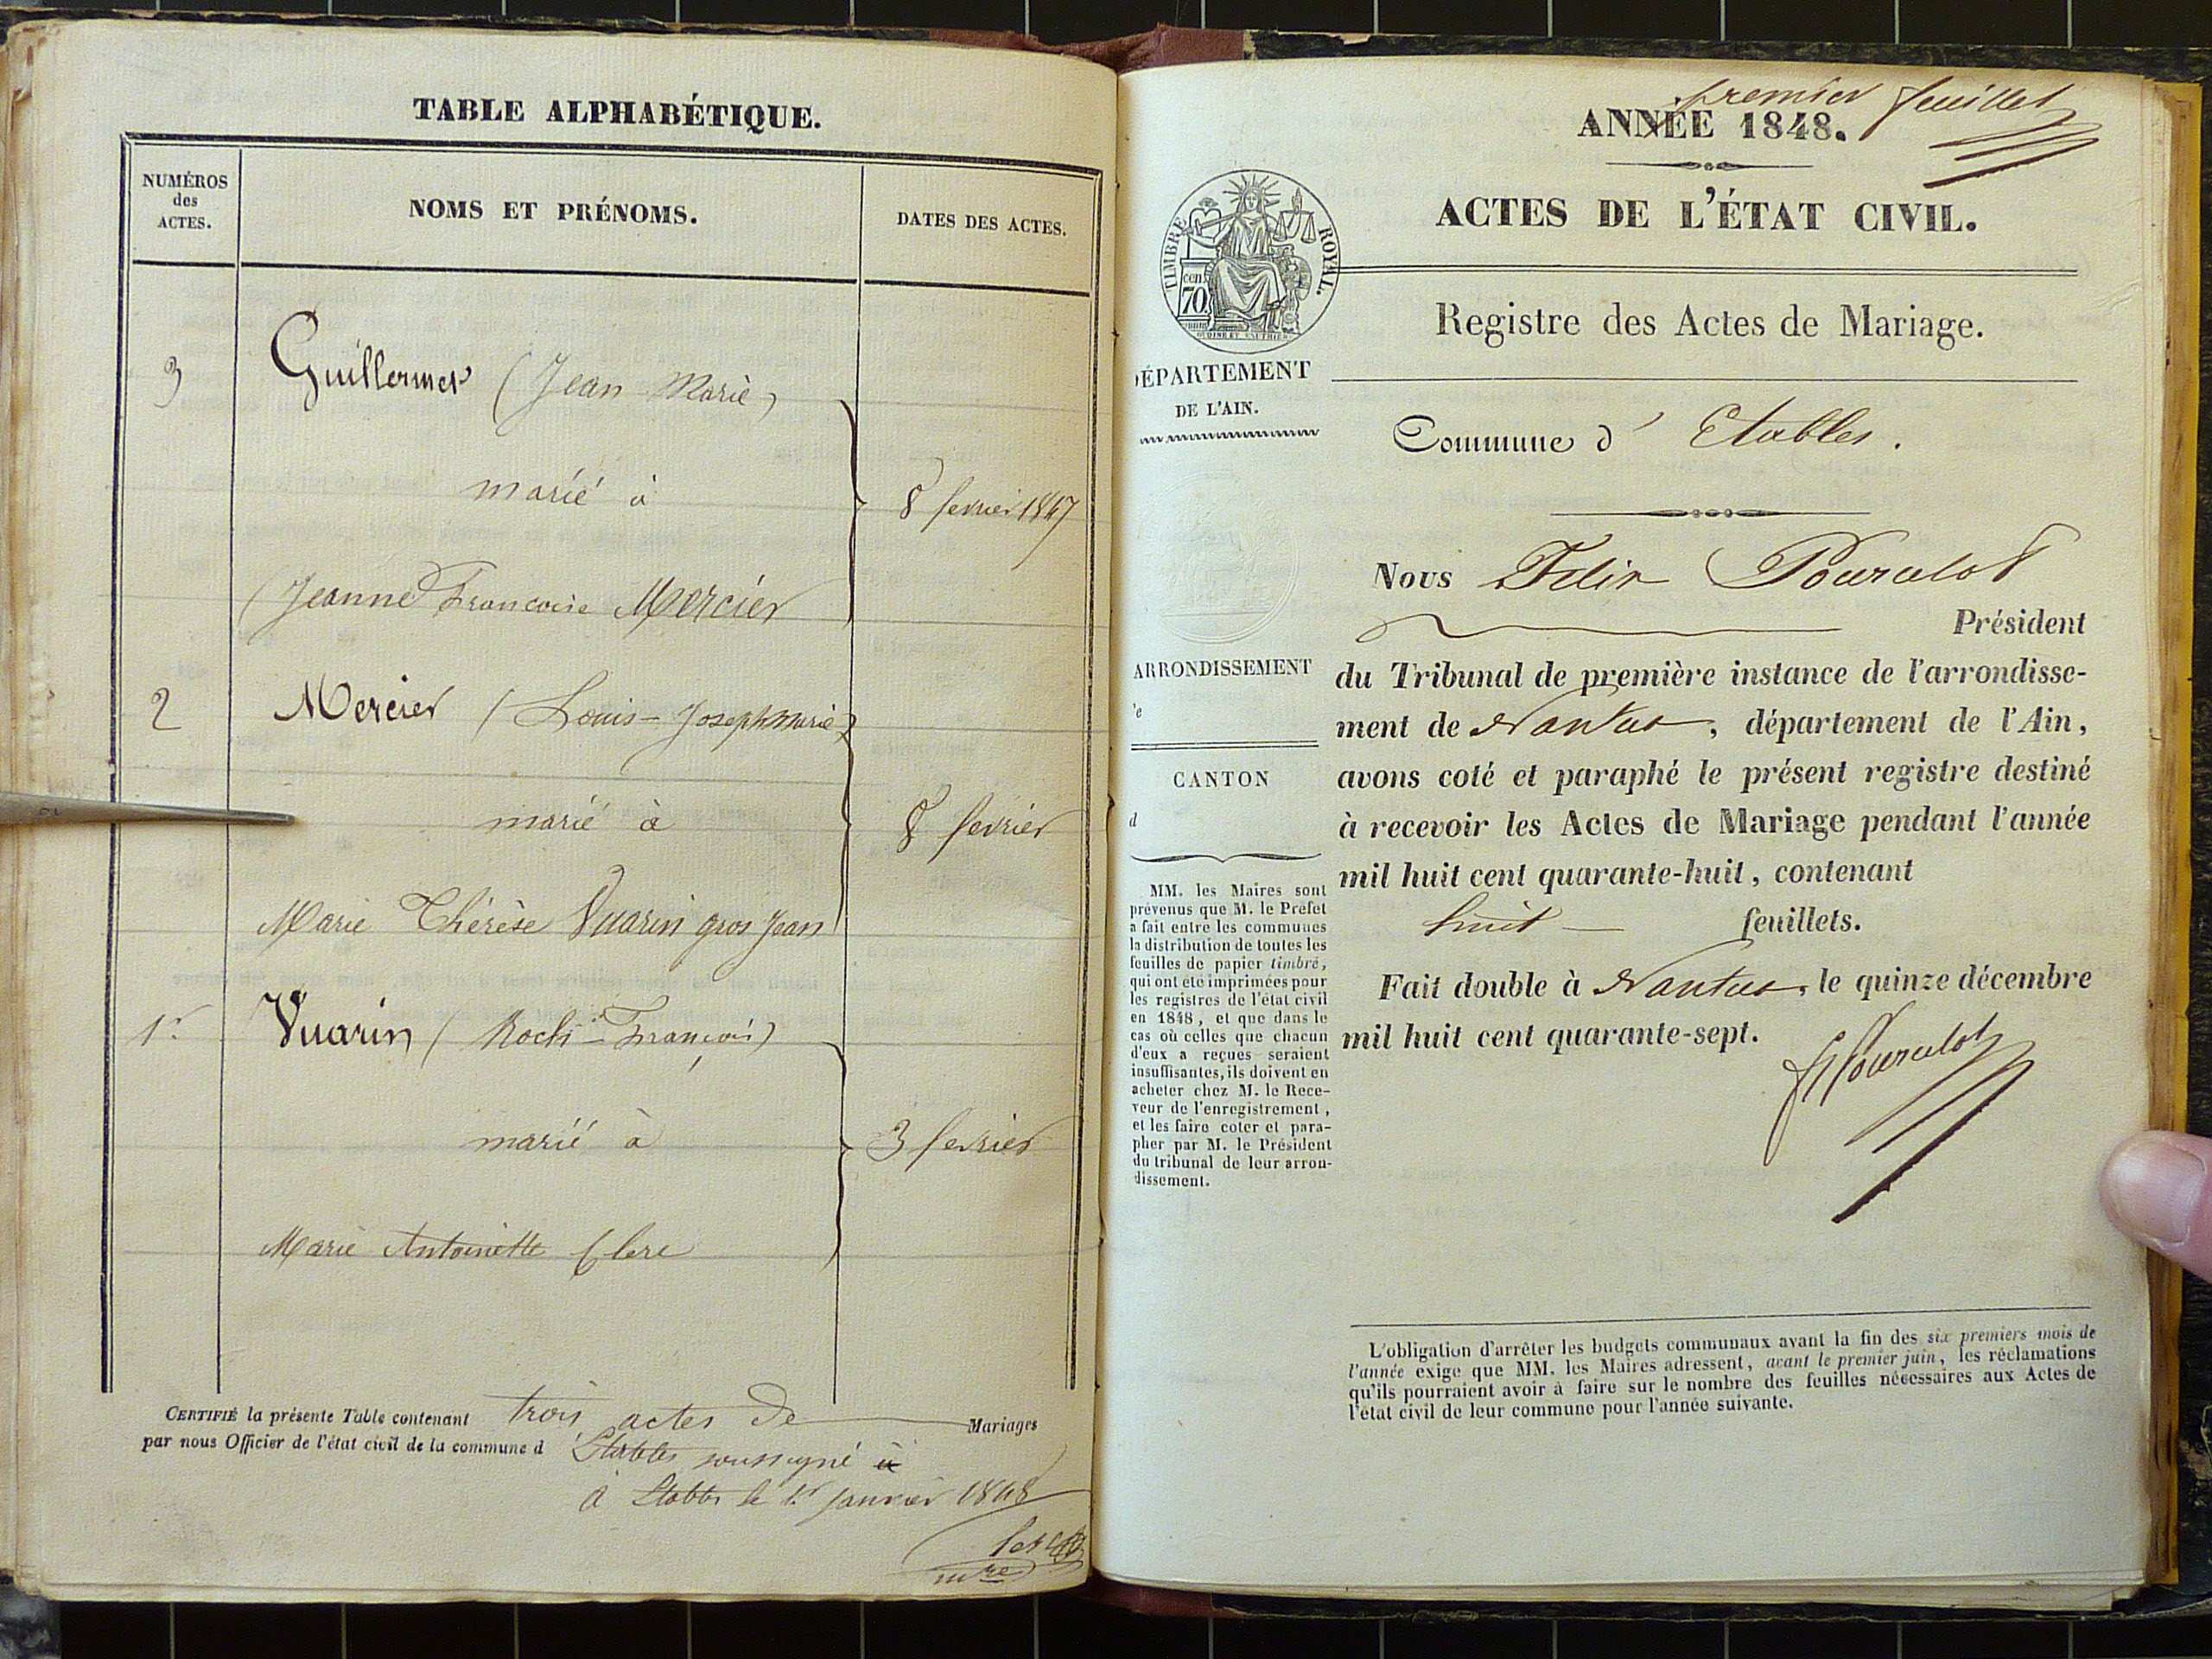 TABLE ALPHABÉTIQUE.
NUMÉROS
des
ACTES.
NOMS ET PRÉNOMS.
DATES DES ACTES.
3
Guillermet (Jean-Marie)
marié à
8 fevrier 1847
(Jeanne Francoise Mercier
2
Mercier (Louis-Joseph Marie)
marié à
8 fevrier
Marie Thérèse Vuarin gros Jean
1.r
Vuarin (Roch-François)
marié à
3 fevrier
Marie Antoinette Clerc
CERTIFIÉ la présente Table contenant trois actes de Mariages
par nous Officier de l'état civil de la commune d Etables soussigné à
à Etables le 1.r janvier 1848
premier feuillet
ANNÉE 1848.
ACTES DE L'ÉTAT CIVIL.
TIMBRE ROYAL.
cen.
70.
Registre des Actes de Mariage.
DÉPARTEMENT
DE L'AIN.
Commune d' Etables.
Nous Felix Pourcelot
Président
ARRONDISSEMENT
'e
CANTON
d
du Tribunal de première instance de l'arrondisse-
ment de Nantua, département de l'Ain,
avons coté et paraphé le présent registre destiné
à recevoir les Actes de Mariage pendant l'année
mil huit cent quarante-huit, contenant
huit feuillets.
Fait double à Nantua, le quinze décembre
mil huit cent quarante-sept.
MM. les Maires sont
prévenus que M. le Préfet
a fait entre les communes
la distribution de toutes les
feuilles de papier timbré,
qui ont été imprimées pour
les registres de l'état civil
en 1848, et que dans le
cas où celles que chacun
d'eux a reçues seraient
insuffisantes, ils doivent en
acheter chez M. le Rece-
veur de l'enregistrement,
et les faire coter et para-
pher par M. le Président
du tribunal de leur arron-
dissement.
Pourcelot
L'obligation d'arrêter les budgets communaux avant la fin des six premiers mois de
l'année exige que MM. les Maires adressent, avant le premier juin, les réclamations
qu'ils pourraient avoir à faire sur le nombre des feuilles nécessaires aux Actes de
l'état civil de leur commune pour l'année suivante.